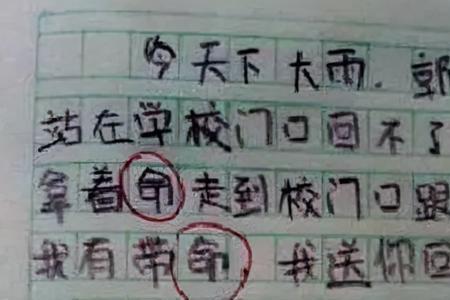 今天下大雨.郭
站在学校门口回不了
拿着命走到校门口跟
我有带命 我送你回